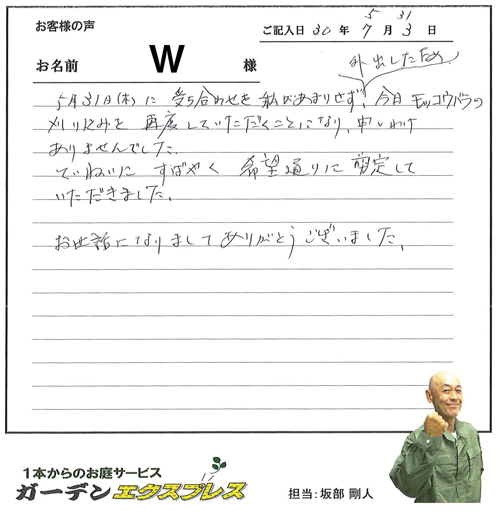 お客様の声
ご記入日 30 年 7 月 3 日
5 31
お名前 W 様
外出したため
5月31日(木)に 受ち合わせを 私があまりせず、今日 モッコウバラの
刈り込みを 再度していただくことになり、申しわけ
ありませんでした。
ていねいに すばやく 希望通りに 剪定して
いただきました。
お世話になりましてありがとうございました。
1本からのお庭サービス
ガーデンエクスプレス
担当:坂部 剛人